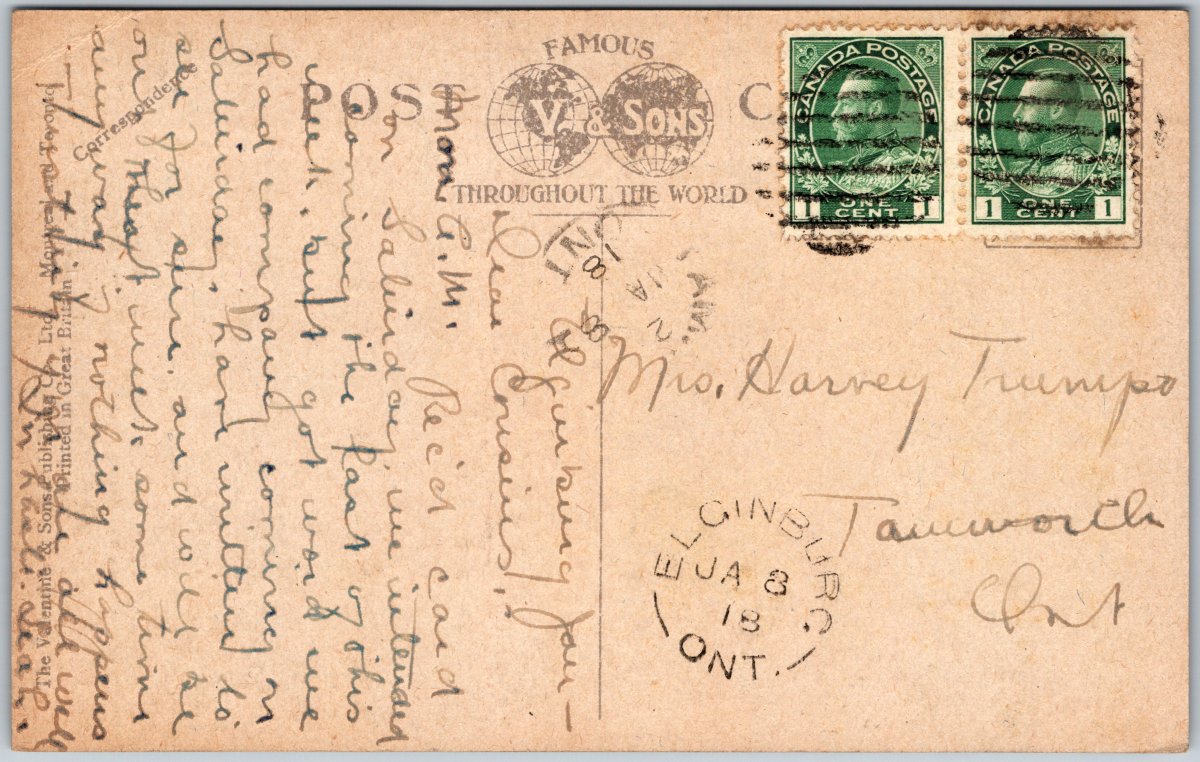 FAMOUS
POST C
V. & SONS
THROUGHOUT THE WORLD
CANADA POSTAGE
1 ONE CENT 1
CANADA POSTAGE
1 ONE CENT 1
TAM
JA
18
ONT
Mrs. Harvey Trumpo
Tamworth
Ont
ELGINBURG
JA 8
18
ONT.
Elginburg Jan
Dear Cousins,
Mon A.M. Rec'd card
on Saturday we intended
coming the last of this
week but got word we
had company coming on
Saturday, have written to
see for sure and will be
on the next week some time
anyway if nothing happens
Hoping this finds all well
Correspondence
The Valentine & Sons Publishing Co., Ltd. Montreal and Toronto
Printed in Great Britain